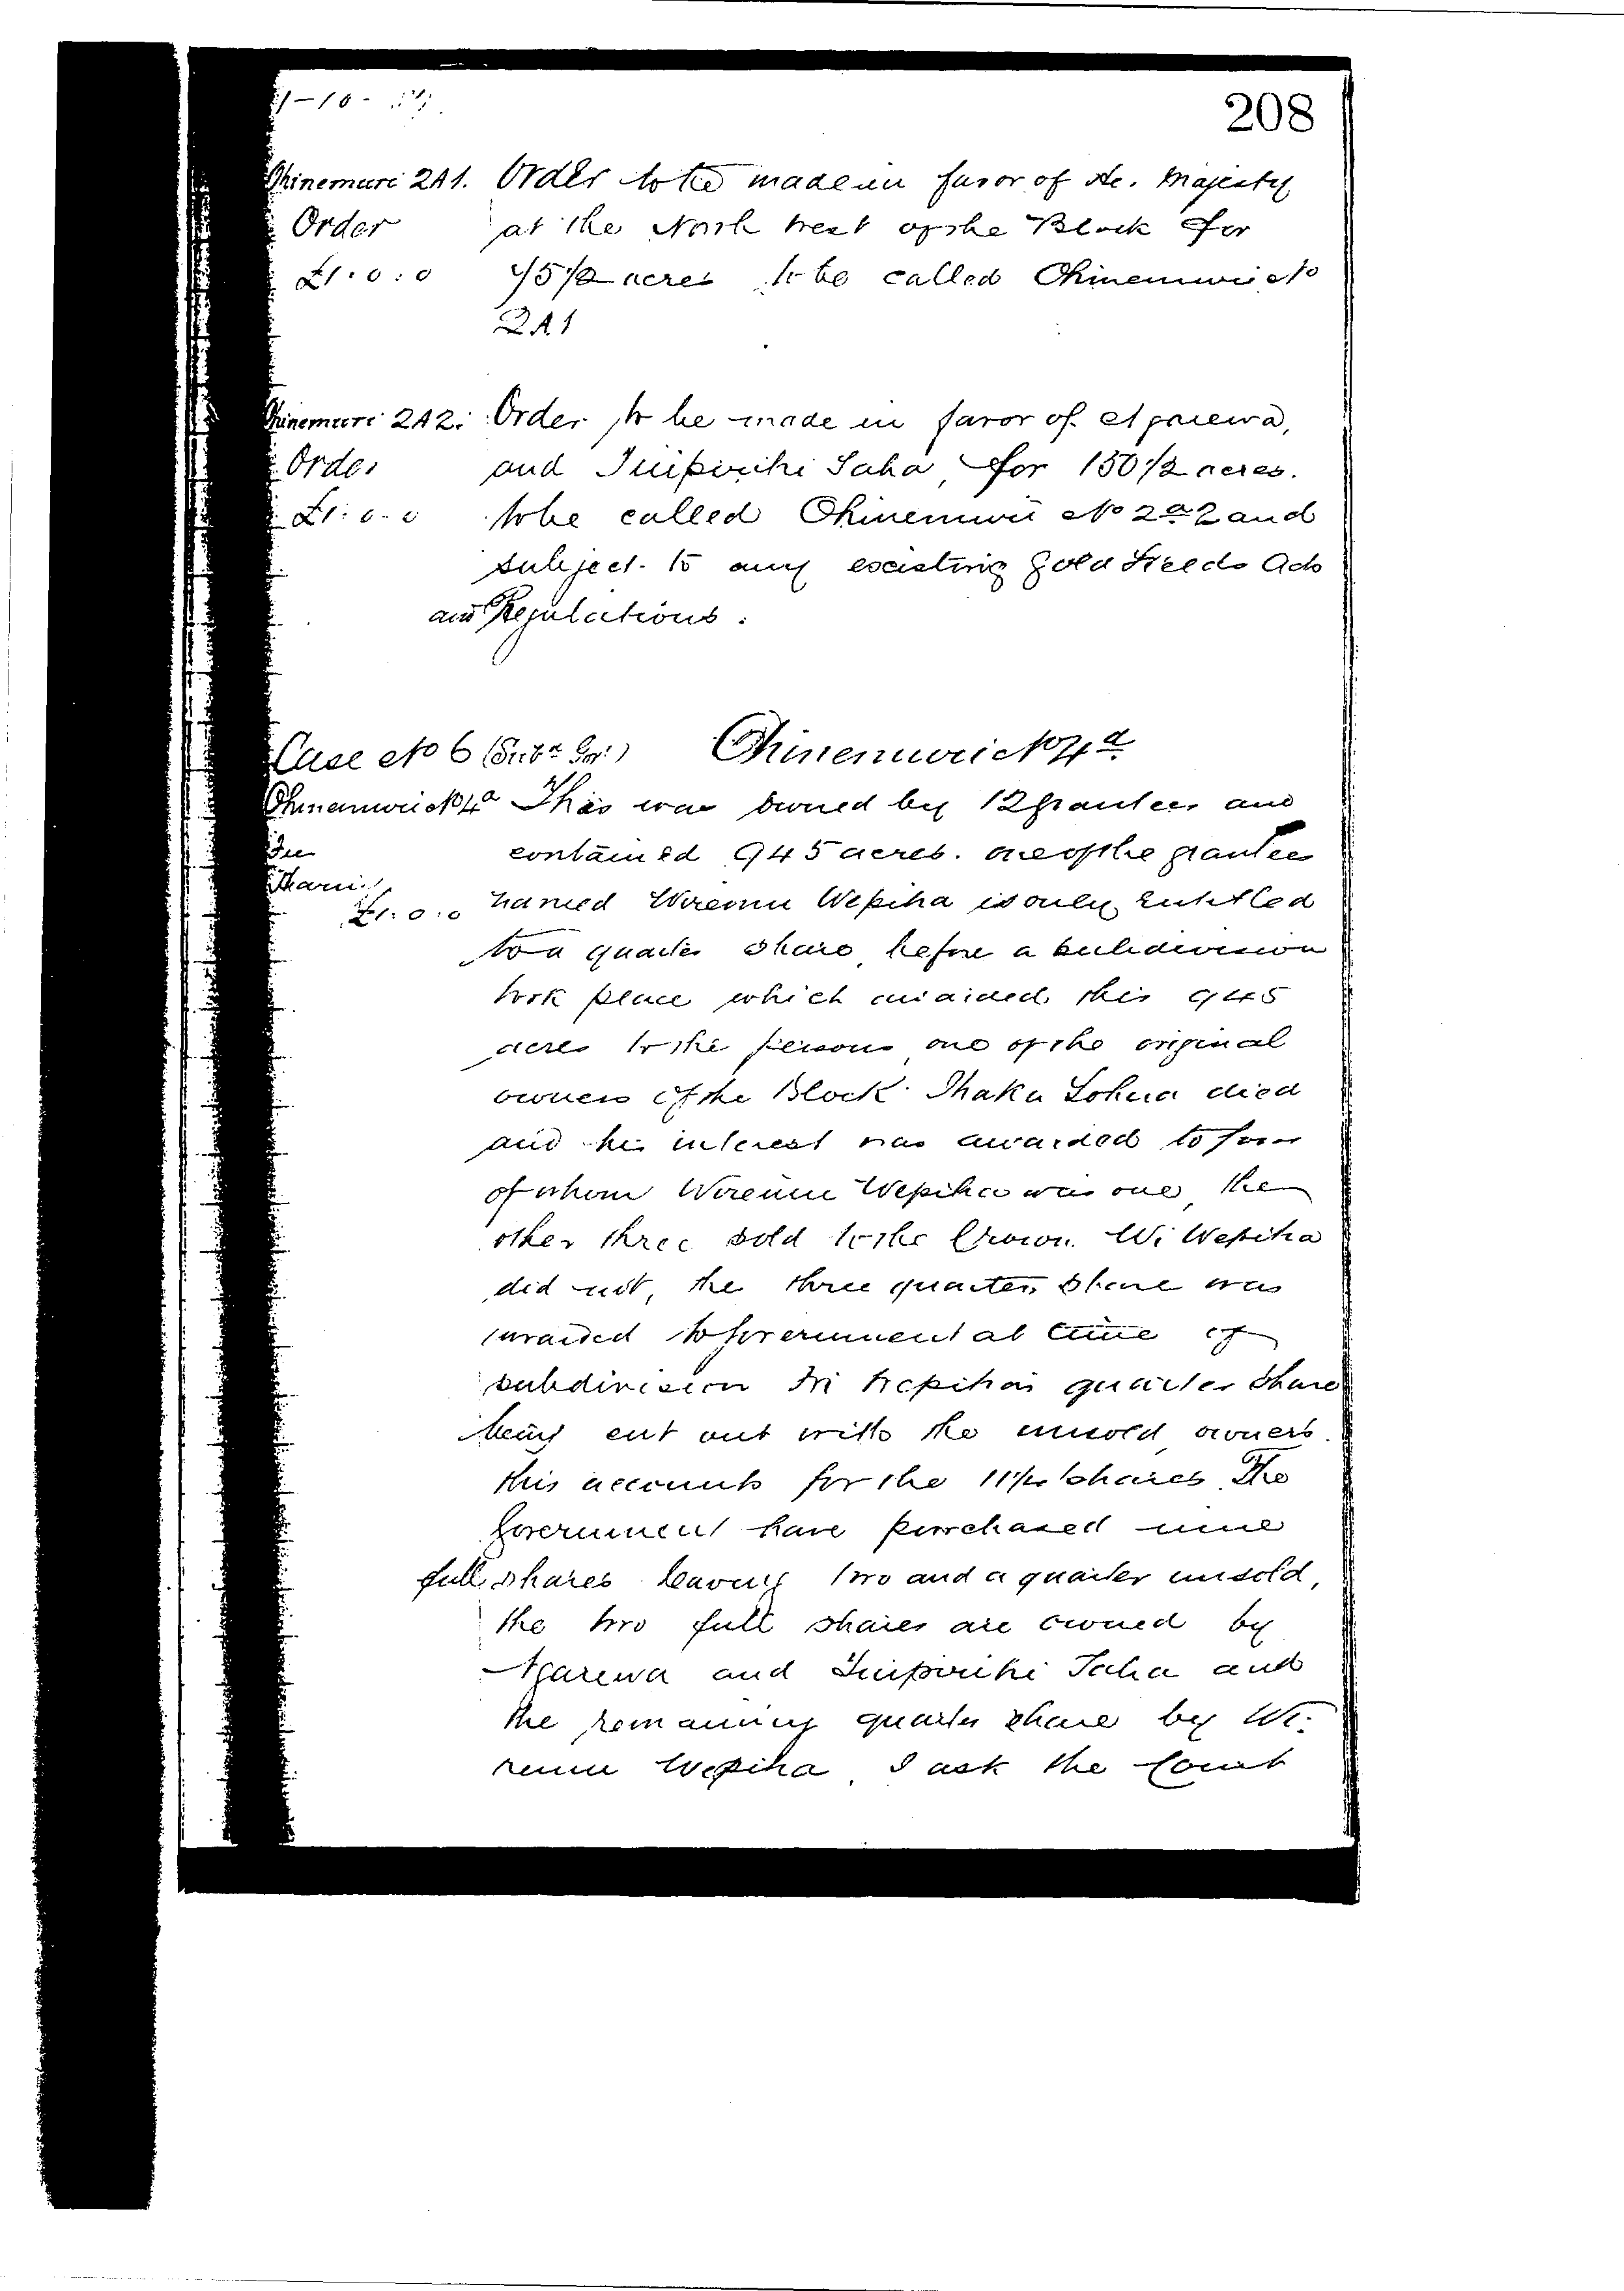 208
Ohinemuri 2A1. Order to be made in favor of He. Majesty
Order at the North West of the Block for
£1.0:0 75 1/2 acres to be called Ohinemuri No
2A1
Ohinemuri 2A2. Order to be made in favor of Ngarewa,
Order and Suipirihi Taha for 150 1/2 acres.
£1:0.0 to be called Ohinemuri No 2A2 and
subject to any existing Gold Fields Acts
and Regulations.
Case No 6 Ohinemuri No
Ohinemuri No This was owned by 12 grantees and
contained 945 acres. one of the grantees
£1.0.0 named Wiremu Wepiha is only entitled
to a quarter share before a subdivision
took place which awarded this 945
acres to the persons one of the original
owners of the Block. died
and his interest was awarded to four
of whom Wiremu Wepiha was one, the
other three sold to the Crown. Wi Wepiha
did not, the three quarters share was
awarded to Government at time of
subdivision Wi Wepihas quarter share
being cut out with the unsold owners.
this accounts for the 11 1/4 shares The
Government have purchased nine
full shares leaving two and a quarter unsold,
the two full shares are owned by
Ngarewa and Suipirihi Taha and
the remaining quarter share by Wi-
remu Wepiha, I ask the Court